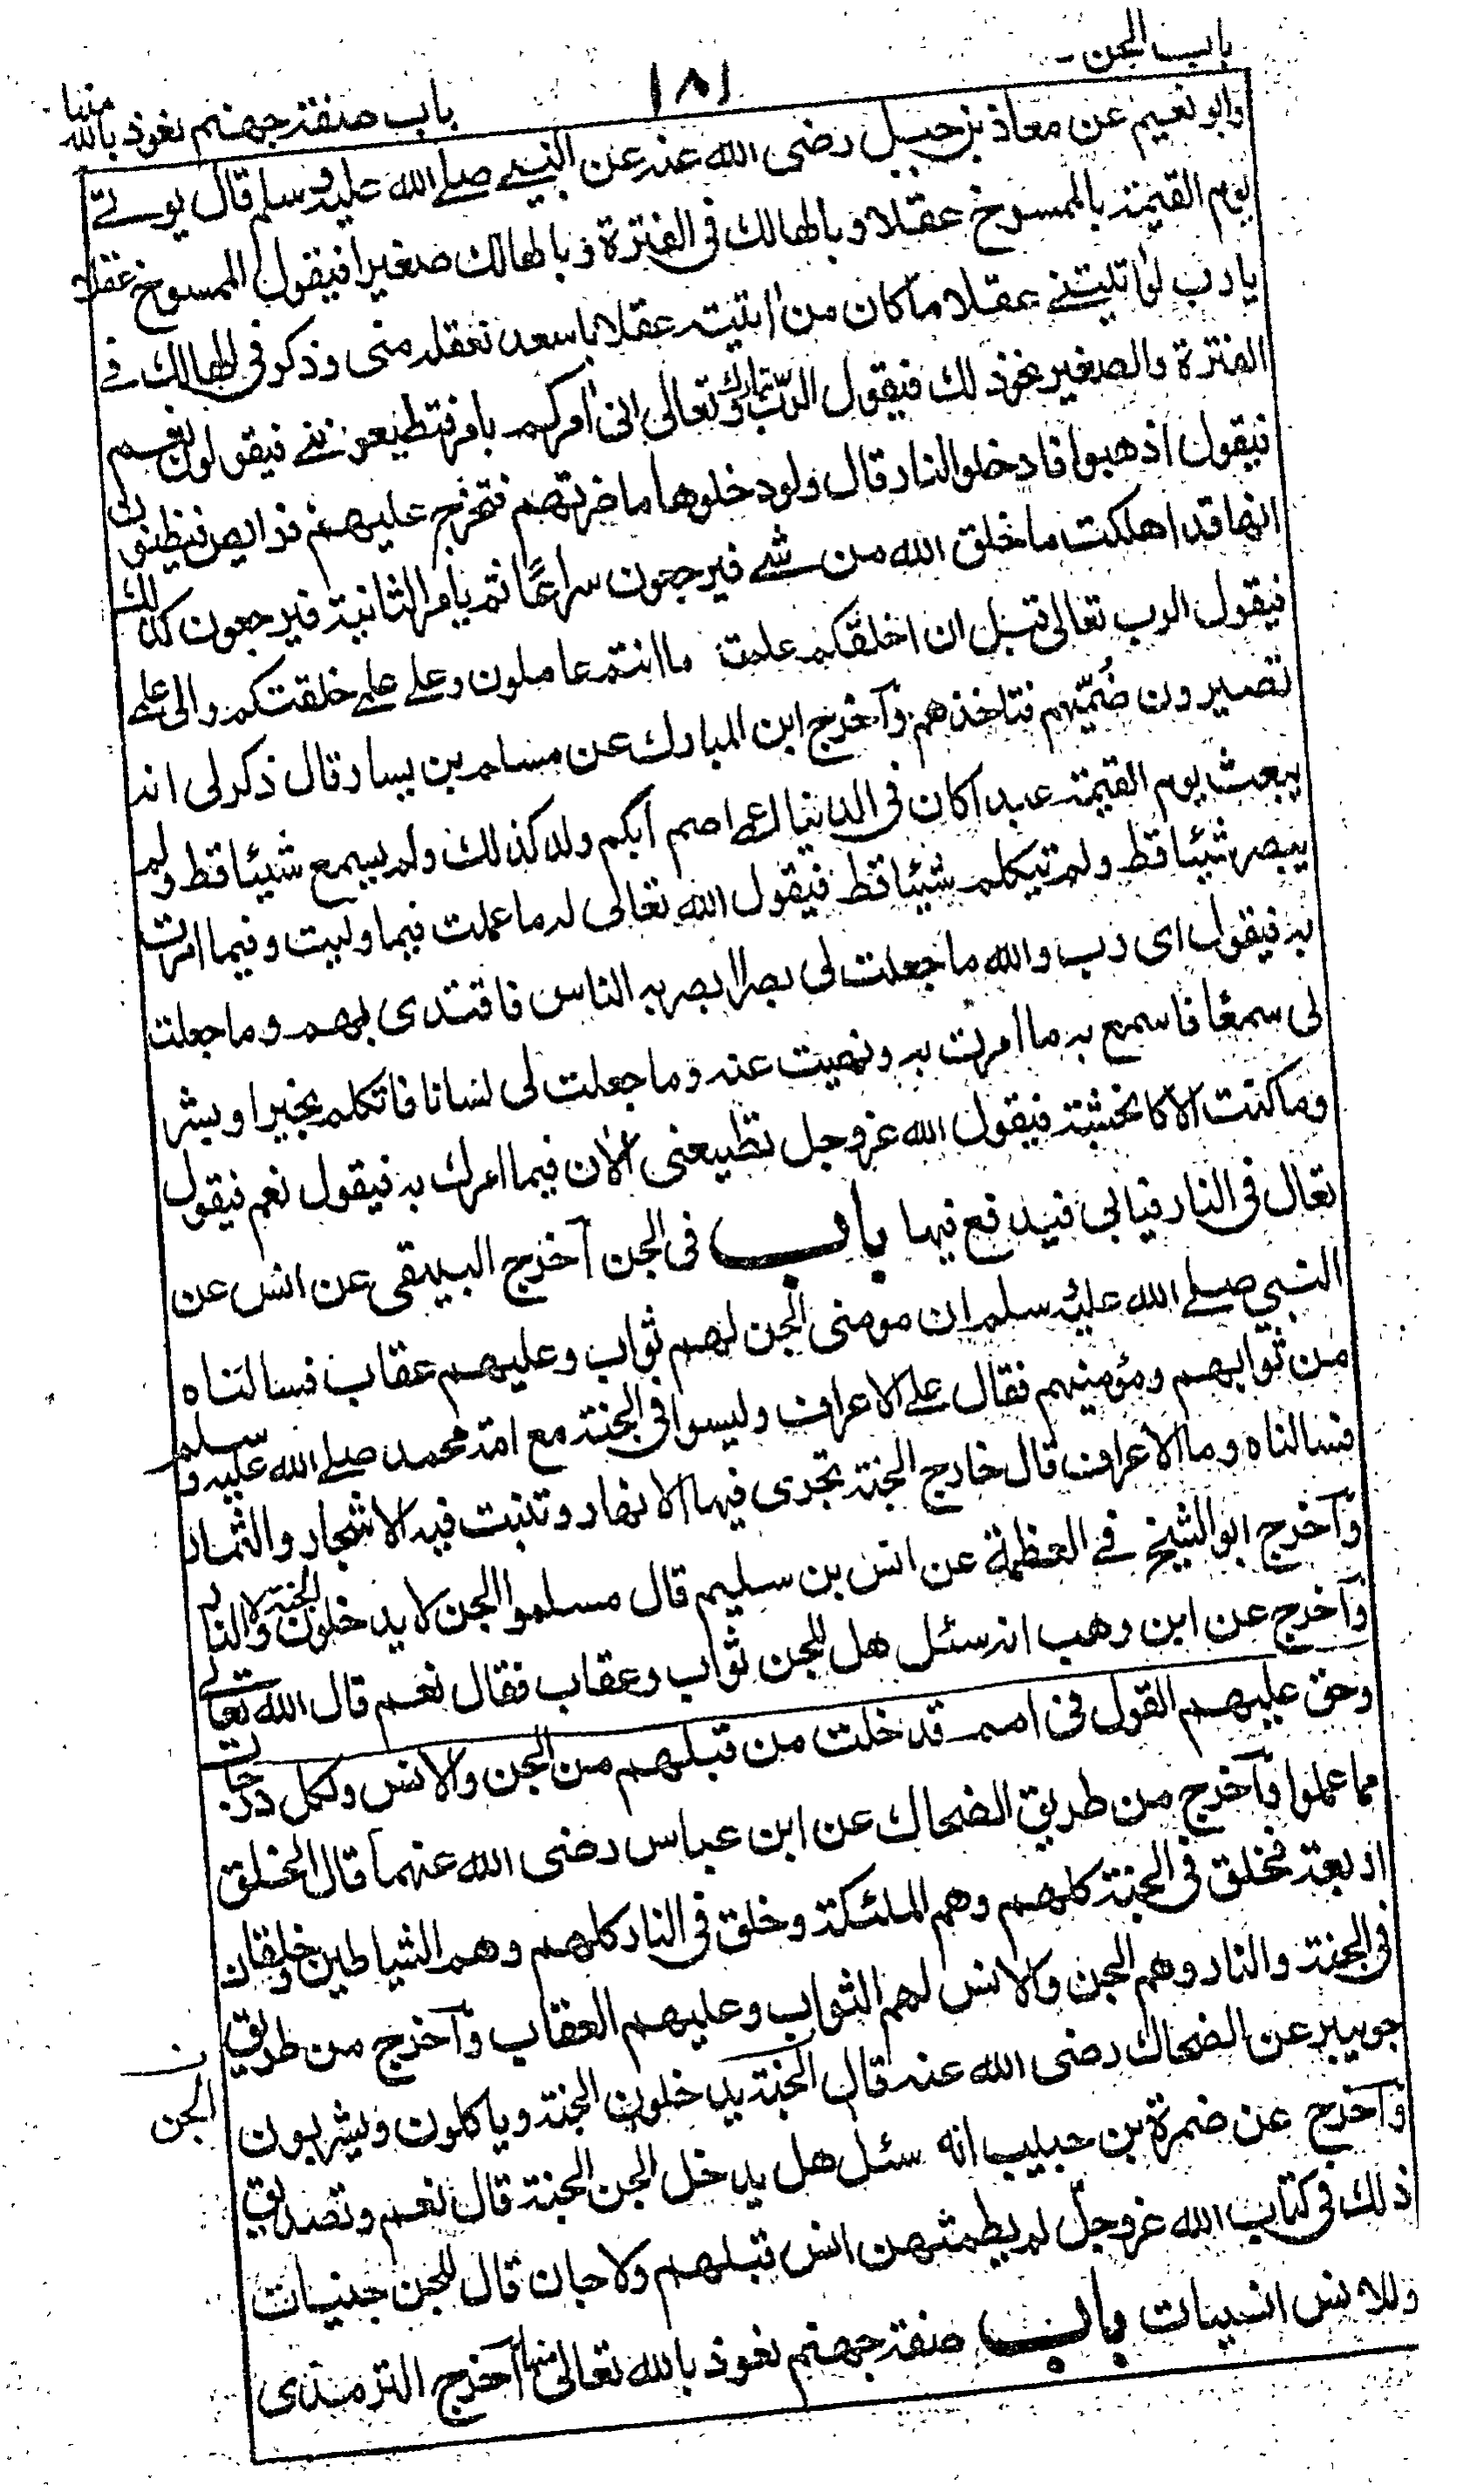 باب الجن -
١٨١
باب صفة جهنم نعوذ بالله منها
وابو نعيم عن معاذ بن جبل رضى الله عنه عن النبي صلى الله عليه وسلم قال يوتى
يوم القيمة بالممسوخ عقلا وبالهالك فى الفترة وبالهالك صغيرا فيقول الممسوخ عقلا
يا رب لو اتيتنى عقلا ما كان من اتيته عقلا باسعد بعقله منى وذكر فى الهالك فى
الفترة والصغير نحو ذلك فيقول الرب تبارك وتعالى انى آمركم بامر فتطيعوننى فيقولون نعم
فيقول اذهبوا فادخلوا النار قال ولو دخلوها ما ضرتهم فتخرج عليهم فرايص فيظنون
انها قد اهلكت ما خلق الله من شئ فيرجعون سراعًا ثم يامر الثانية فيرجعون كذلك
فيقول الرب تعالى قبل ان اخلقكم علمت ما انتم عاملون وعلى علمى خلقتكم والى علمى
تصيرون ضُمّيهم فتاخذهم وآخرج ابن المبارك عن مسلم بن يسار قال ذكر لى انه
يبعث يوم القيمة عبد اكان فى الدنيا اعمى اصم ابكم ولد كذلك ولم يسمع شيئا قط ولم
يبصر شيئا قط ولم تيكلم شيئا قط فيقول الله تعالى له ما عملت فيما وليت وفيما امرت
به فيقول اى رب والله ما جعلت لى بصرا ابصر به الناس فاقتدى بهم وما جعلت
لى سمعًا فاسمع به ما امرت به ونهيت عنه وما جعلت لى لسانا فاتكلم بخير او بشر
وما كنت الا كا لخشبة فيقول الله عز وجل تطيعنى الآن فيما امرك به فيقول نعم فيقول
تعال فى النار فيابى فيدفع فيها باب فى الجن آخرج البيهقى عن انس عن
النبي صلى الله عليه وسلم ان مومنى الجن لهم ثواب وعليهم عقاب فسالناه
من ثوابهم ومؤمنيهم فقال على الاعراف وليسوا فى الجنة مع امة محمد صلى الله عليه وسلم
فسالناه وما الاعراف قال خارج الجنة تجرى فيها الانهار وتنبت فيه الاشجار والثمار
وآخرج ابو الشيخ فى العظمة عن انس بن سليم قال مسلموا الجن لا يدخلون الجنة ولا النار
وآخرج عن ابن وهب انه سئل هل للجن ثواب وعقاب فقال نعم قال الله تعالى
وحق عليهم القول فى امم قد خلت من قبلهم من الجن والانس ولكل درجات
مما عملوا وآخرج من طريق الضحاك عن ابن عباس رضى الله عنهما قال الخلق
اربعة فخلق فى الجنة كلهم وهم الملئكة وخلق فى النار كلهم وهم الشياطين وخلقان
فى الجنة والنار وهم الجن والانس لهم الثواب وعليهم العقاب وآخرج من طريق
جويبر عن الضحاك رضى الله عنه قال الجنة يدخلون الجنة وياكلون ويشربون
ن
الجن
وآخرج عن ضمرة بن حبيب انه سئل هل يدخل الجن الجنة قال نعم وتصديق
ذلك فى كتاب الله عز وجلّ لم يطمثهن انس قبلهم ولا جان قال للجن جنيات
وللانس انسيات باب صفة جهنم نعوذ بالله تعالى منها آخرج الترمذى